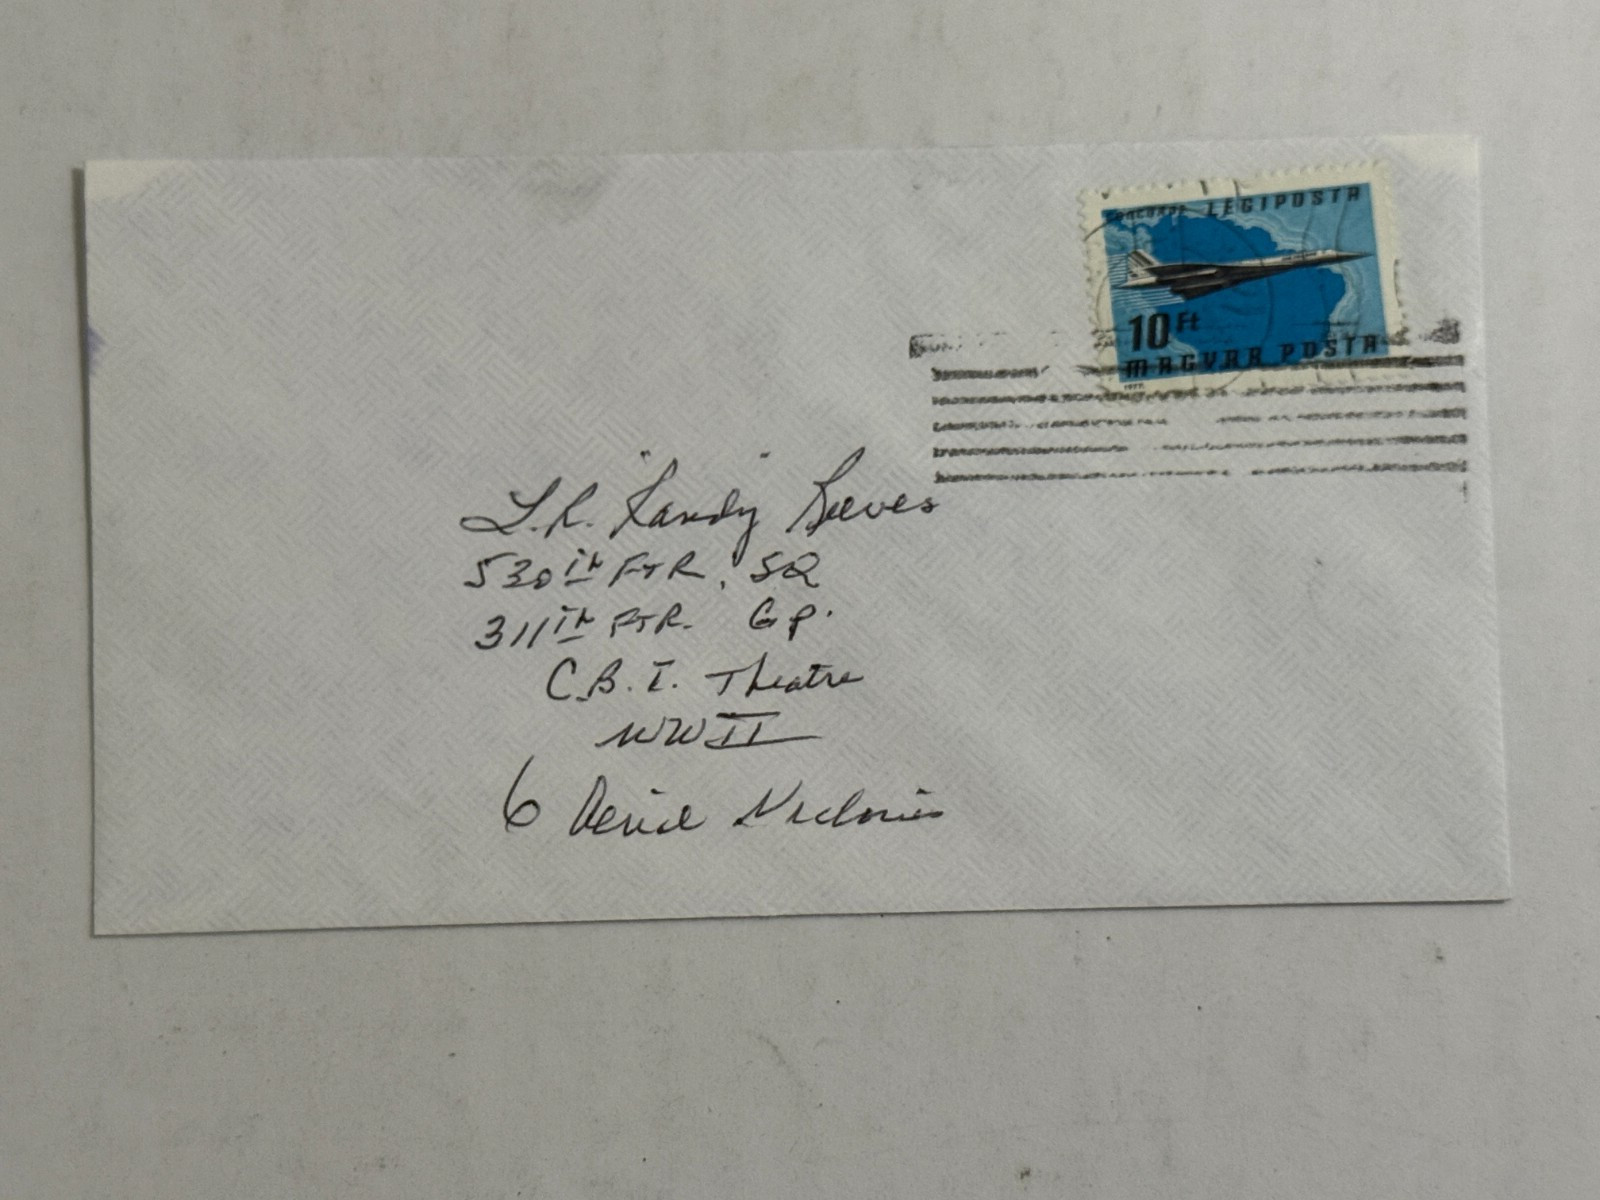 CONCORDE LÉGIPOSTA
10 Ft
MAGYAR POSTA
L.R. "Randy" Reeves
530th FTR. SQ
311th FTR. Gp.
C.B.I. Theatre
WW II
6 Aerial Victories